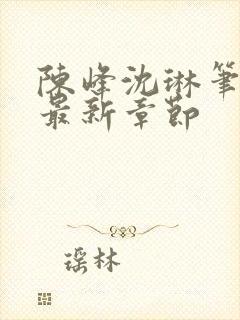 陳峰沈琳筆
最新章節
瑶林